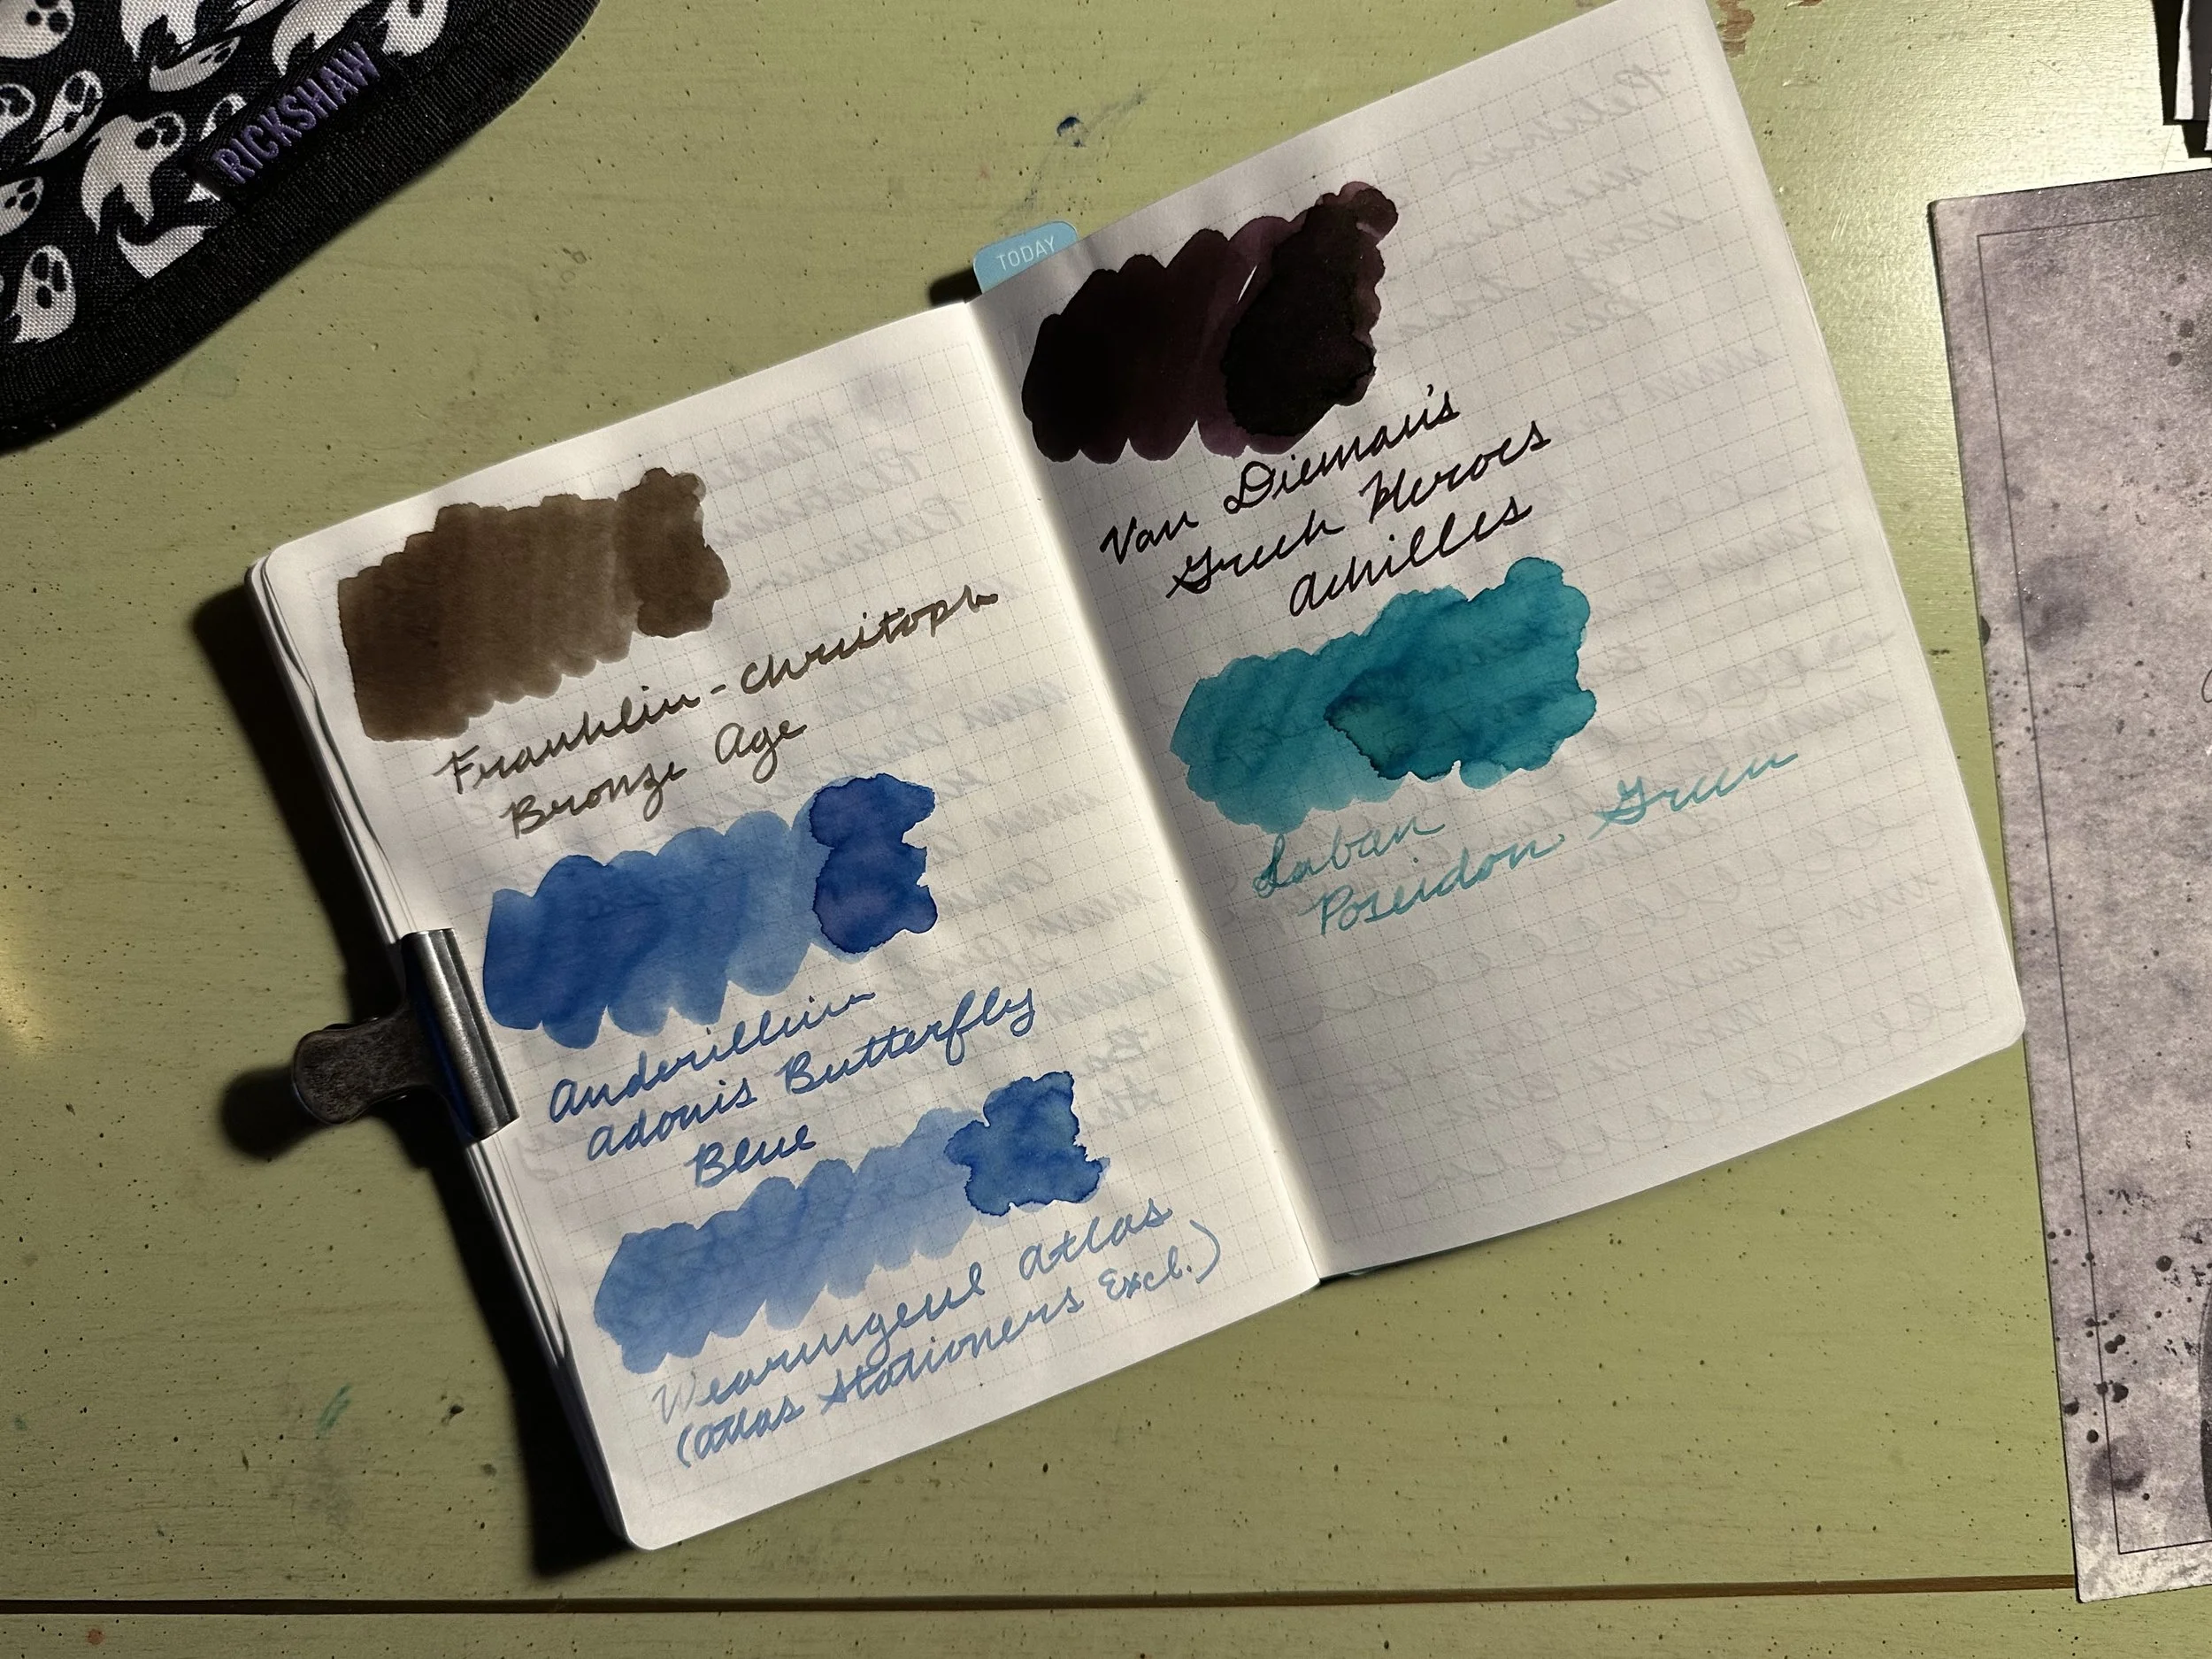 RICKSHAW
TODAY
Franklin-Christoph
Bronze Age
Anderillium
Adonis Butterfly
Blue
Wearingeul Atlas
(Atlas Stationers Excl.)
Van Dieman's
Greek Heroes
Achilles
Laban
Poseidon Green